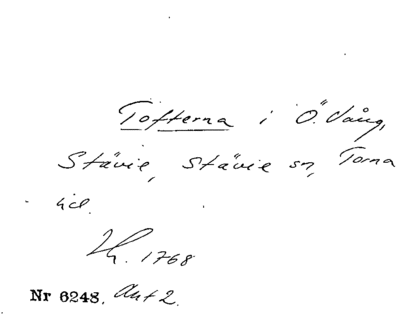 Tofterna i Ö. Vång,
Stävie, Stävie sn, Torna
hd.
1768
Nr 6248. Akt 2.